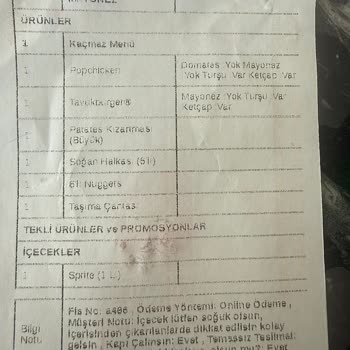 ÜRÜNLER
1 Kaçmaz Menü
1 Popchicken Domates :Yok Mayonez
:Yok Turşu :Var Ketçap :Var
1 Tavukburger Mayonez :Yok Turşu :Var
Ketçap :Var
1 Patates Kızartması
(Büyük)
1 Soğan Halkası (6'lı)
1 6'lı Nuggets
1 Taşıma Çantası
TEKLİ ÜRÜNLER ve PROMOSYONLAR
İÇECEKLER
1 Sprite (1 L)
Bilgi
Notu
Fis No: a486 , Ödeme Yöntemi: Online Ödeme ,
Müşteri Notu: İçecek lütfen soğuk olsun,
içerisinden çıkarılanlarda dikkat edilsin kolay
gelsin , Kapı Çalınsın: Evet , Temassız Teslimat: